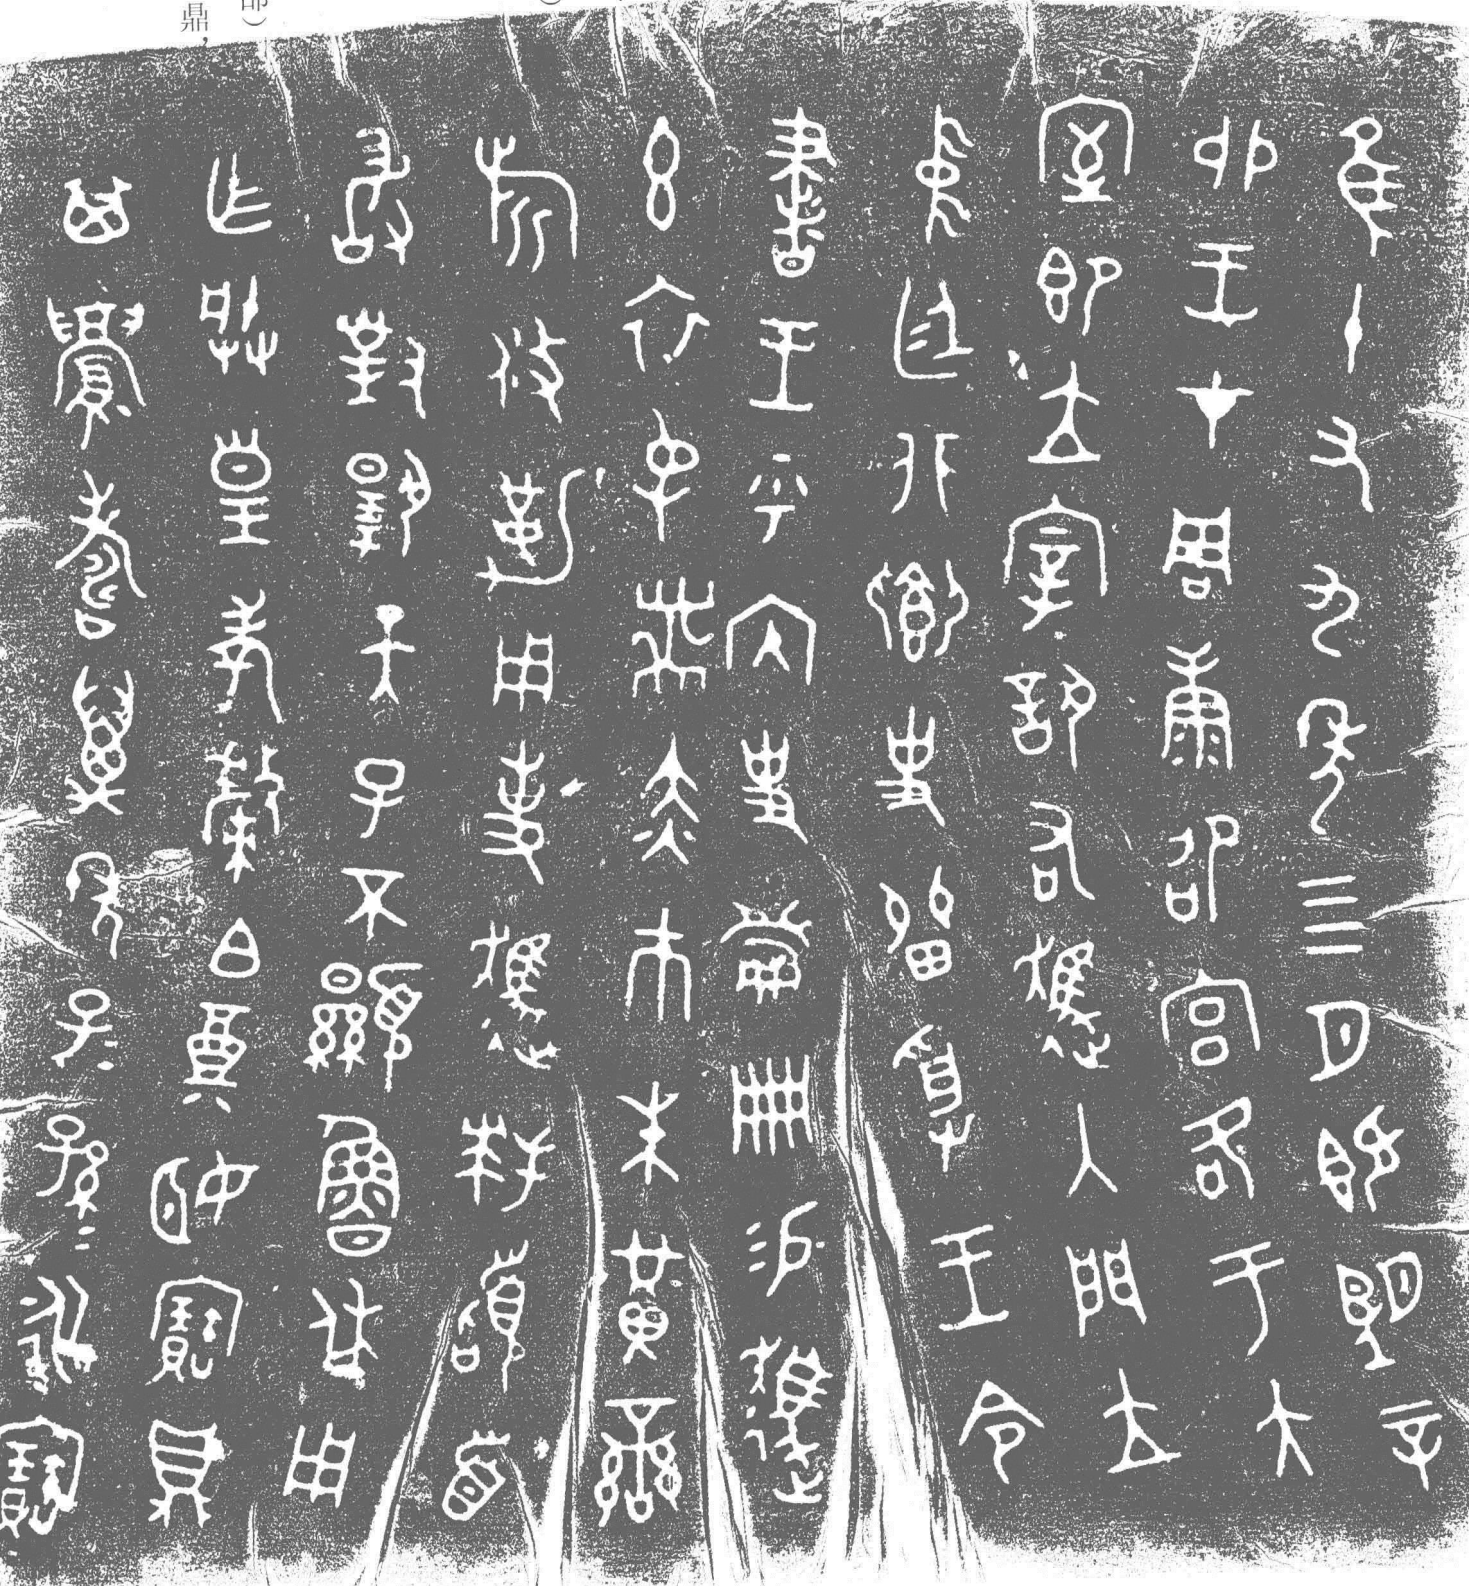 隹十又九年四月既望辛
卯王才周康卲宮各于大
室即立宰訊右趩入門立
中廷北鄉史留受王令
書王乎內史冊易趩
玄衣屯黹赤市朱黃䜌
旂攸勒用事趩拜𩒨首
敢對揚天子不顯魯休用
乍朕皇考斄白奠姬寶鼎
其眉壽萬年子=孫=永寶
鼎，